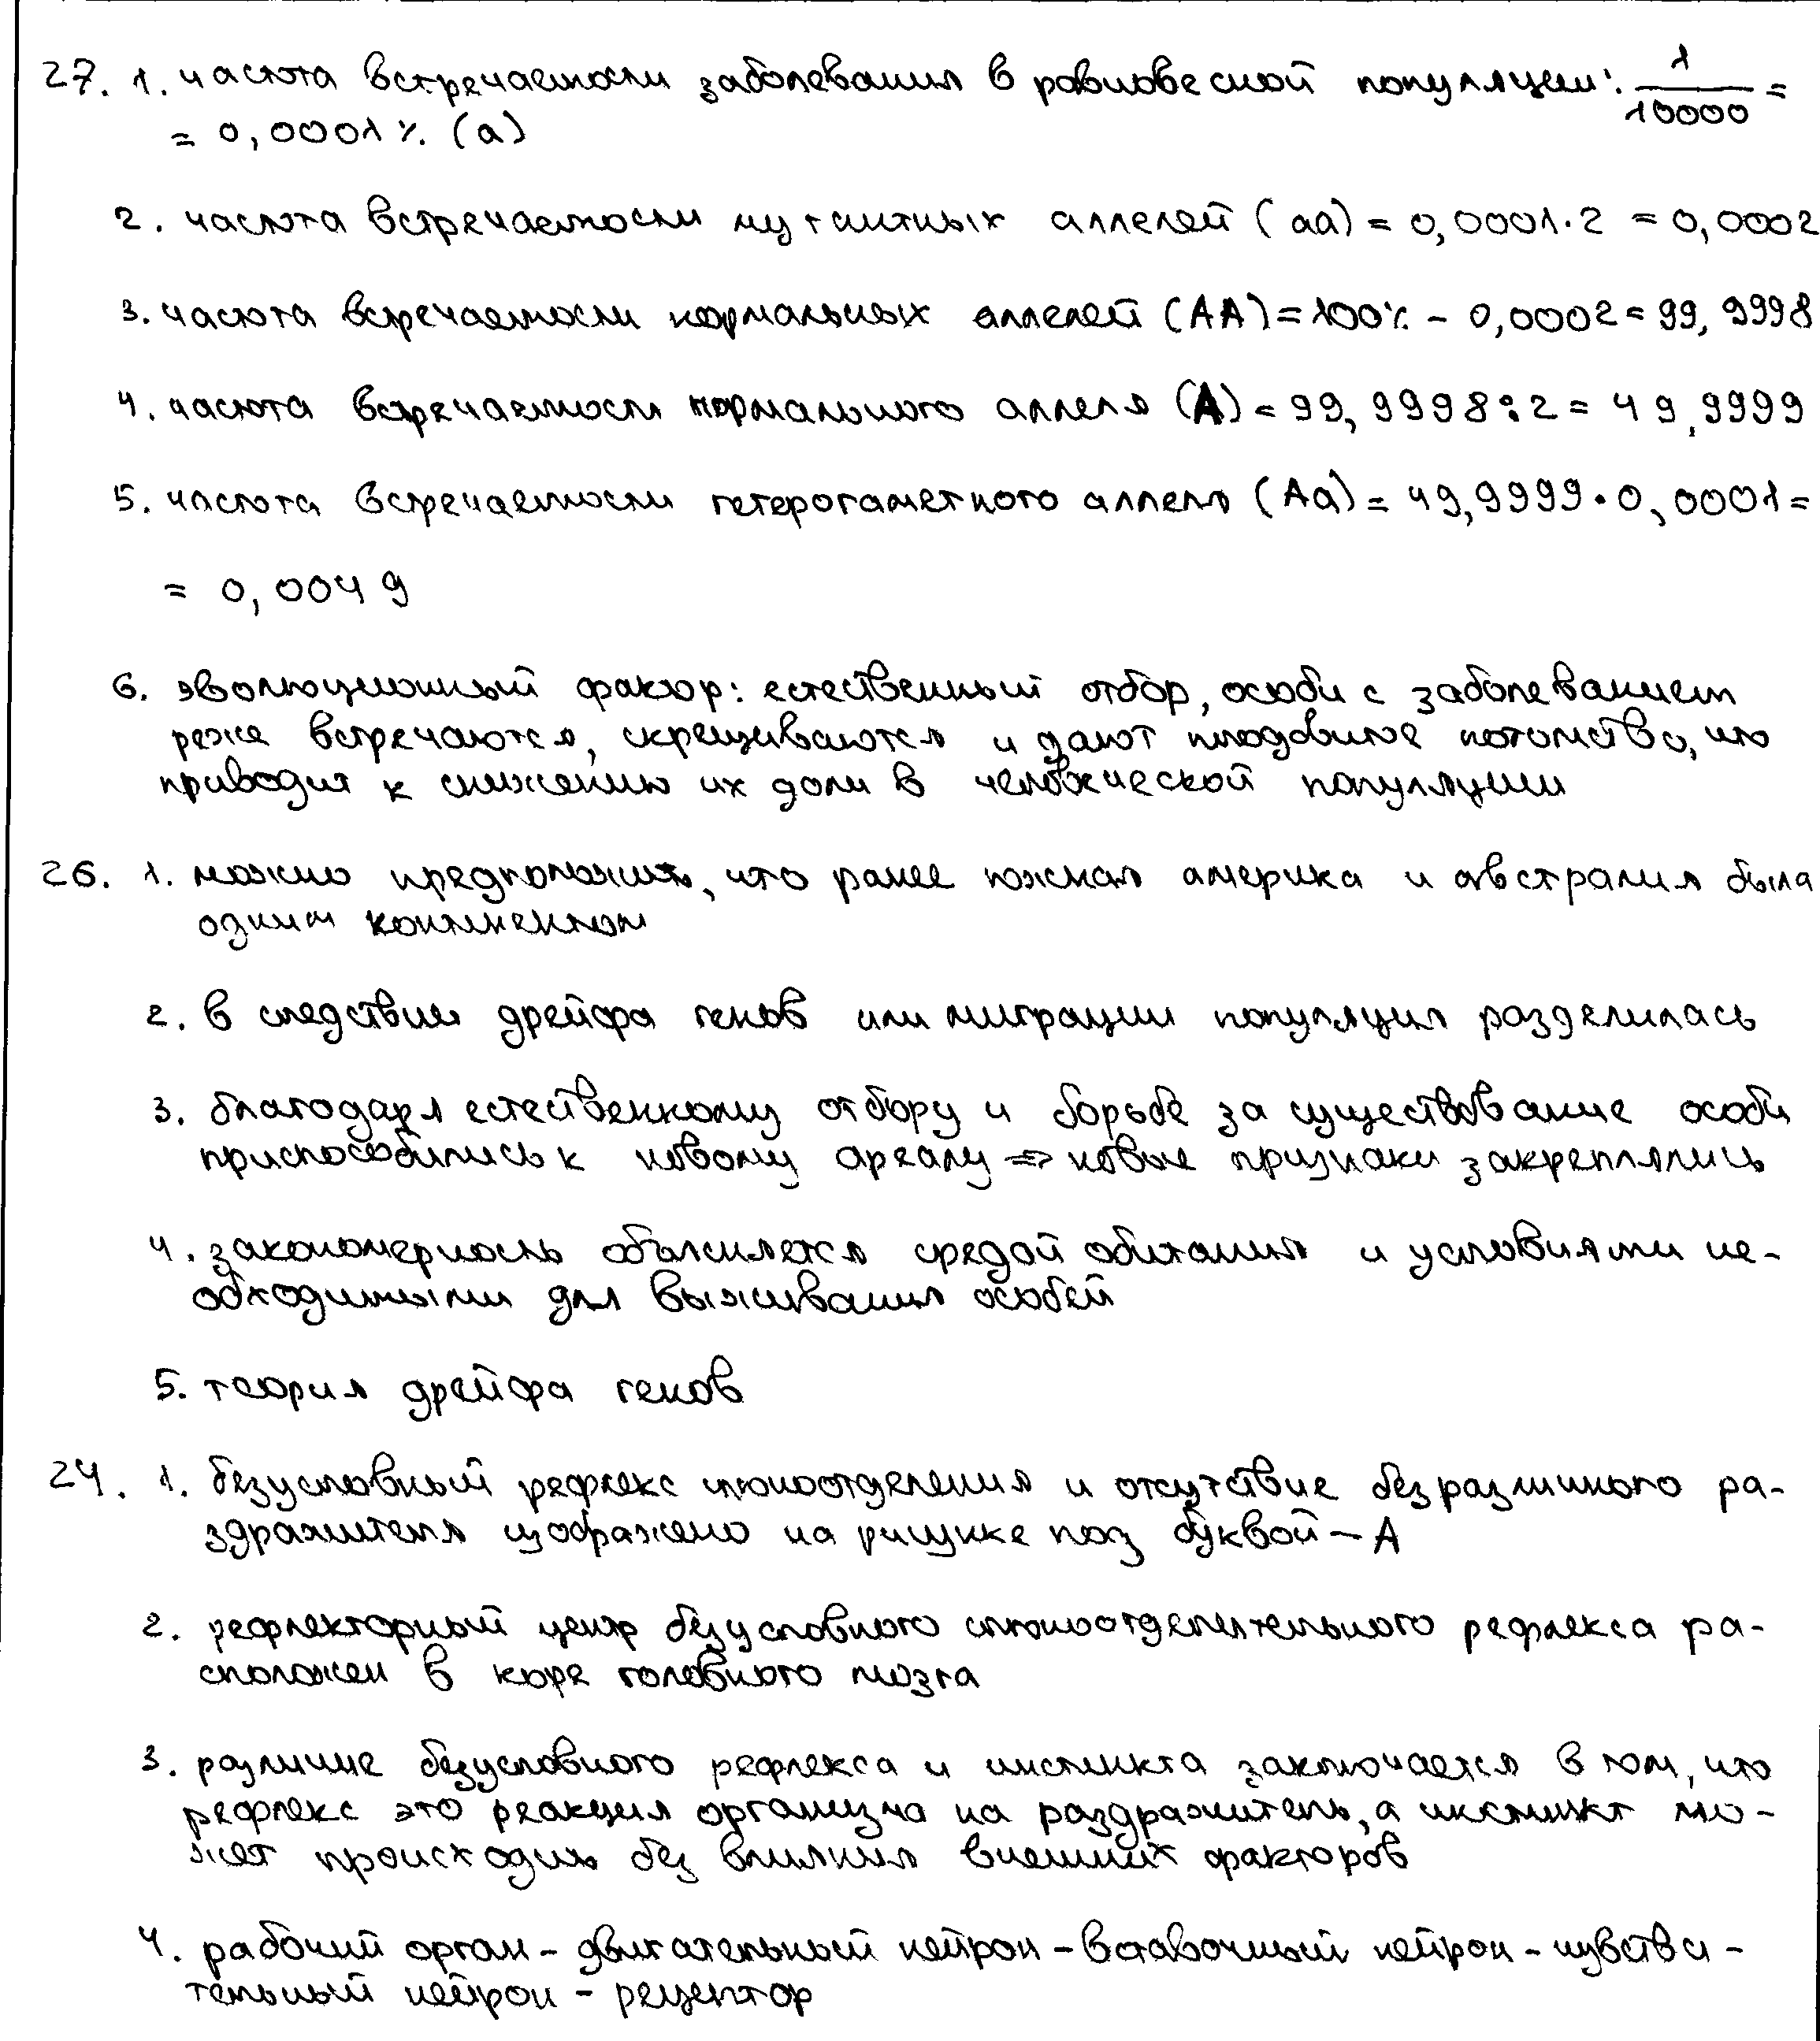 27. 1. частота встречаемости заболевания в равновесной популяции: 1/10000 =
= 0,0001 % (а)
2. частота встречаемости мутантных аллелей (аа) = 0,0001·2 = 0,0002
3. частота встречаемости нормальных аллелей (АА) = 100% - 0,0002 = 99,9998
4. частота встречаемости нормального аллеля (А) = 99,9998 : 2 = 49,9999
5. частота встречаемости гетерогаметного аллеля (Аа) = 49,9999·0,0001 =
= 0,0049
6. эволюционный фактор: естественный отбор, особи с заболеванием
реже встречаются, скрещиваются и дают плодовитое потомство, что
приводит к снижению их доли в человеческой популяции
26. 1. можно предположить, что ранее южная америка и австралия была
одним континентом
2. в следствии дрейфа генов или миграции популяция разделилась
3. благодаря естественному отбору и борьбе за существование особи
приспособились к новому ареалу => новые признаки закреплялись
4. закономерность объясняется средой обитания и условиями не-
обходимыми для выживания особей
5. теория дрейфа генов
24. 1. безусловный рефлекс слюноотделения и отсутствие безразличного ра-
здражителя изображено на рисунке под буквой – А
2. рефлекторный центр безусловного слюноотделительного рефлекса ра-
сположен в коре головного мозга
3. различие безусловного рефлекса и инстинкта заключается в том, что
рефлекс это реакция организма на раздражитель, а инстинкт мо-
жет происходить без влияния внешних факторов
4. рабочий орган - двигательный нейрон - вставочный нейрон - чувстви-
тельный нейрон - рецептор